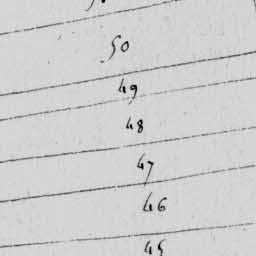 50
49
48
47
46
45